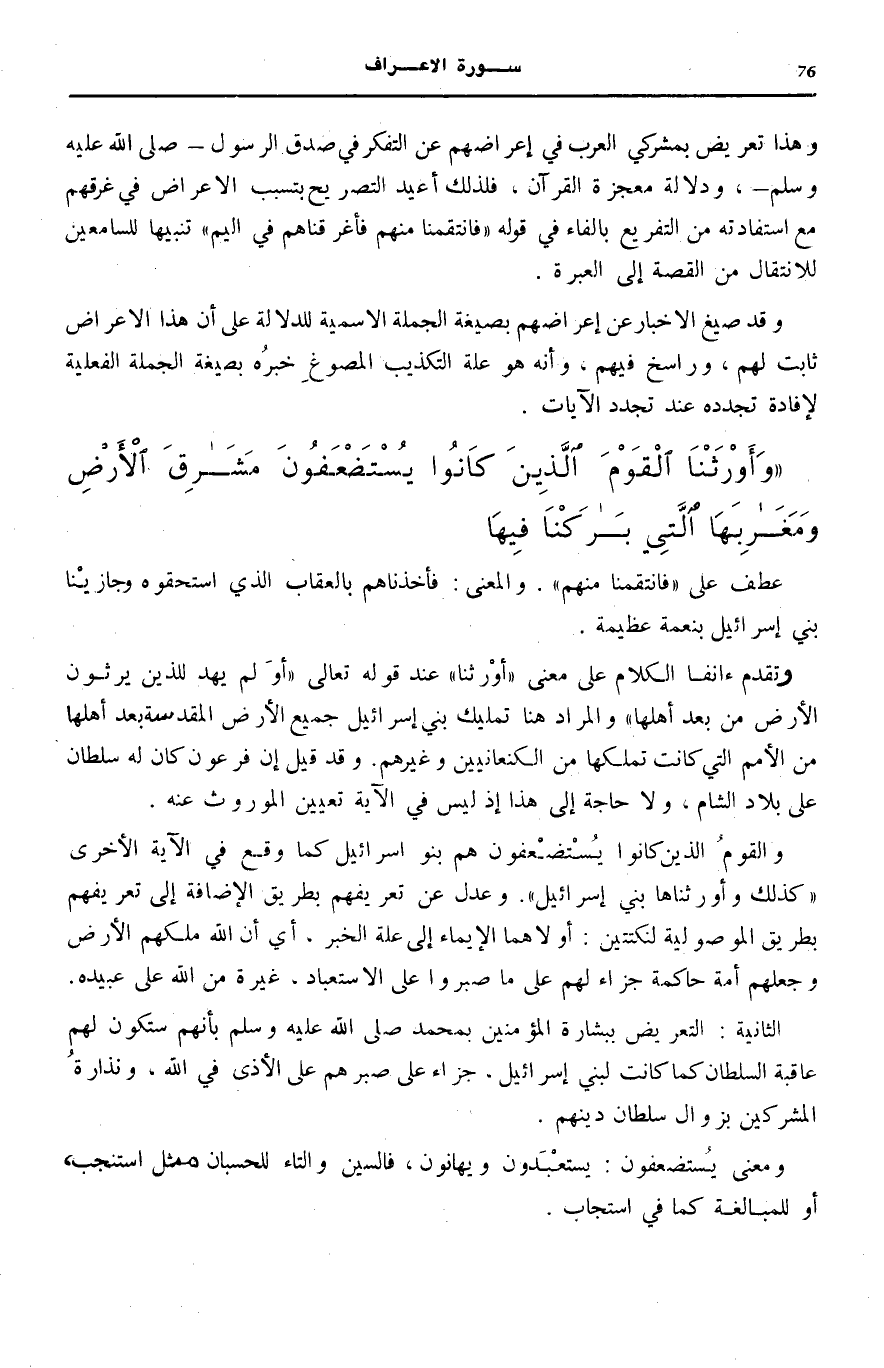 76
ســـورة الاعـــراف
وهذا تعريض بمشركي العرب في إعراضهم عن التفكر في صدق الرسول – صلى الله عليه
وسلم– ، ودلالة معجزة القرآن ، فلذلك أعيد التصريح بتسبب الاعراض في غرقهم
مع استفادته من التفريع بالفاء في قوله «فانتقمنا منهم فأغرقناهم في اليم» تنبيها للسامعين
للانتقال من القصة إلى العبرة .
وقد صيغ الاخبار عن إعراضهم بصيغة الجملة الاسمية للدلالة على أن هذا الاعراض
ثابت لهم ، وراسخ فيهم ، وأنه هو علة التكذيب المصوغِ خبرُه بصيغة الجملة الفعلية
لإفادة تجدده عند تجدد الآيات .
«وَأَوْرَثْنَا ٱلْقَوْمَ ٱلَّذِينَ كَانُوا يُسْتَضْعَفُونَ مَشَـٰـرِقَ ٱلْأَرْضِ
وَمَغَـٰرِبَهَا ٱلَّتِي بَـٰـرَكْنَا فِيهَا
عطف على «فانتقمنا منهم» . والمعنى : فأخذناهم بالعقاب الذي استحقوه وجازيْنا
بني إسرائيل بنعمة عظيمة .
وتقدم ءانفـا الـكلام على معنى «أوْرثنا» عند قوله تعالى «أوَ لم يهد للذين يرثـون
الأرض من بعد أهلها» والمراد هنا تمليك بني إسرائيل جميع الأرض المقدسة بعد أهلها
من الأمم التي كانت تملـكها من الـكنعانيين وغيرهم. وقد قيل إن فرعون كان له سلطان
على بلاد الشام ، ولا حاجة إلى هذا إذ ليس في الآية تعيين الموروث عنه .
والقومُ الذين كانوا يُسْتضْعفون هم بنو اسرائيل كما وقـع في الآية الأخرى
«كذلك وأورثناها بني إسرائيل». وعدل عن تعريفهم بطريق الإضافة إلى تعريفهم
بطريق الموصولية لنكتتين : أولاهما الإيماء إلى علة الخبر . أي أن الله ملـكهم الأرض
وجعلهم أمة حاكمة جزاء لهم على ما صبروا على الاستعباد ، غيرة من الله على عبيده.
الثانية : التعريض ببشارة المؤمنين بمحمد صلى الله عليه وسلم بأنهم ستكون لهم
عاقبة السلطان كما كانت لبني إسرائيل ، جزاء على صبرهم على الأذى في الله ، ونذارةُ
المشركين بزوال سلطان دينهم .
ومعنى يُستضعفون : يستعْبَدون ويهانون ، فالسين والتاء للحسبان ممثل استنجب،
أو للمبـالغـة كما في استجاب .